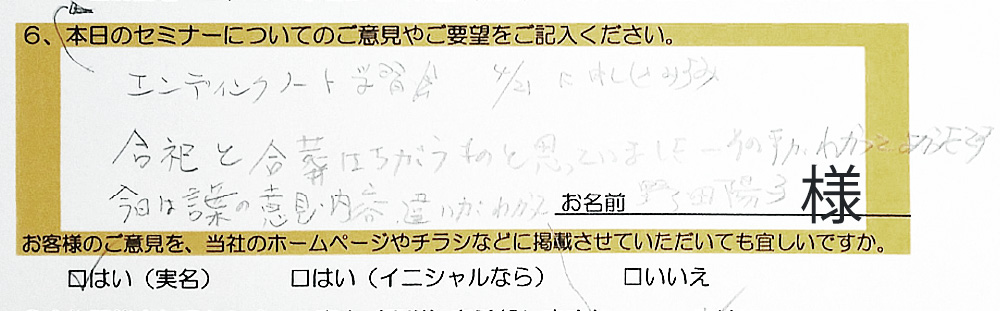 6、本日のセミナーについてのご意見やご要望をご記入ください。
エンディングノート学習会 4/21 に申し込み済み
合祀と合葬はちがうものと思っていました その事が、わかってよかったです
今日は言葉の意見、内容、違いが、わかって
お名前 野々田陽子 様
お客様のご意見を、当社のホームページやチラシなどに掲載させていただいても宜しいですか。
☑はい（実名） □はい（イニシャルなら） □いいえ